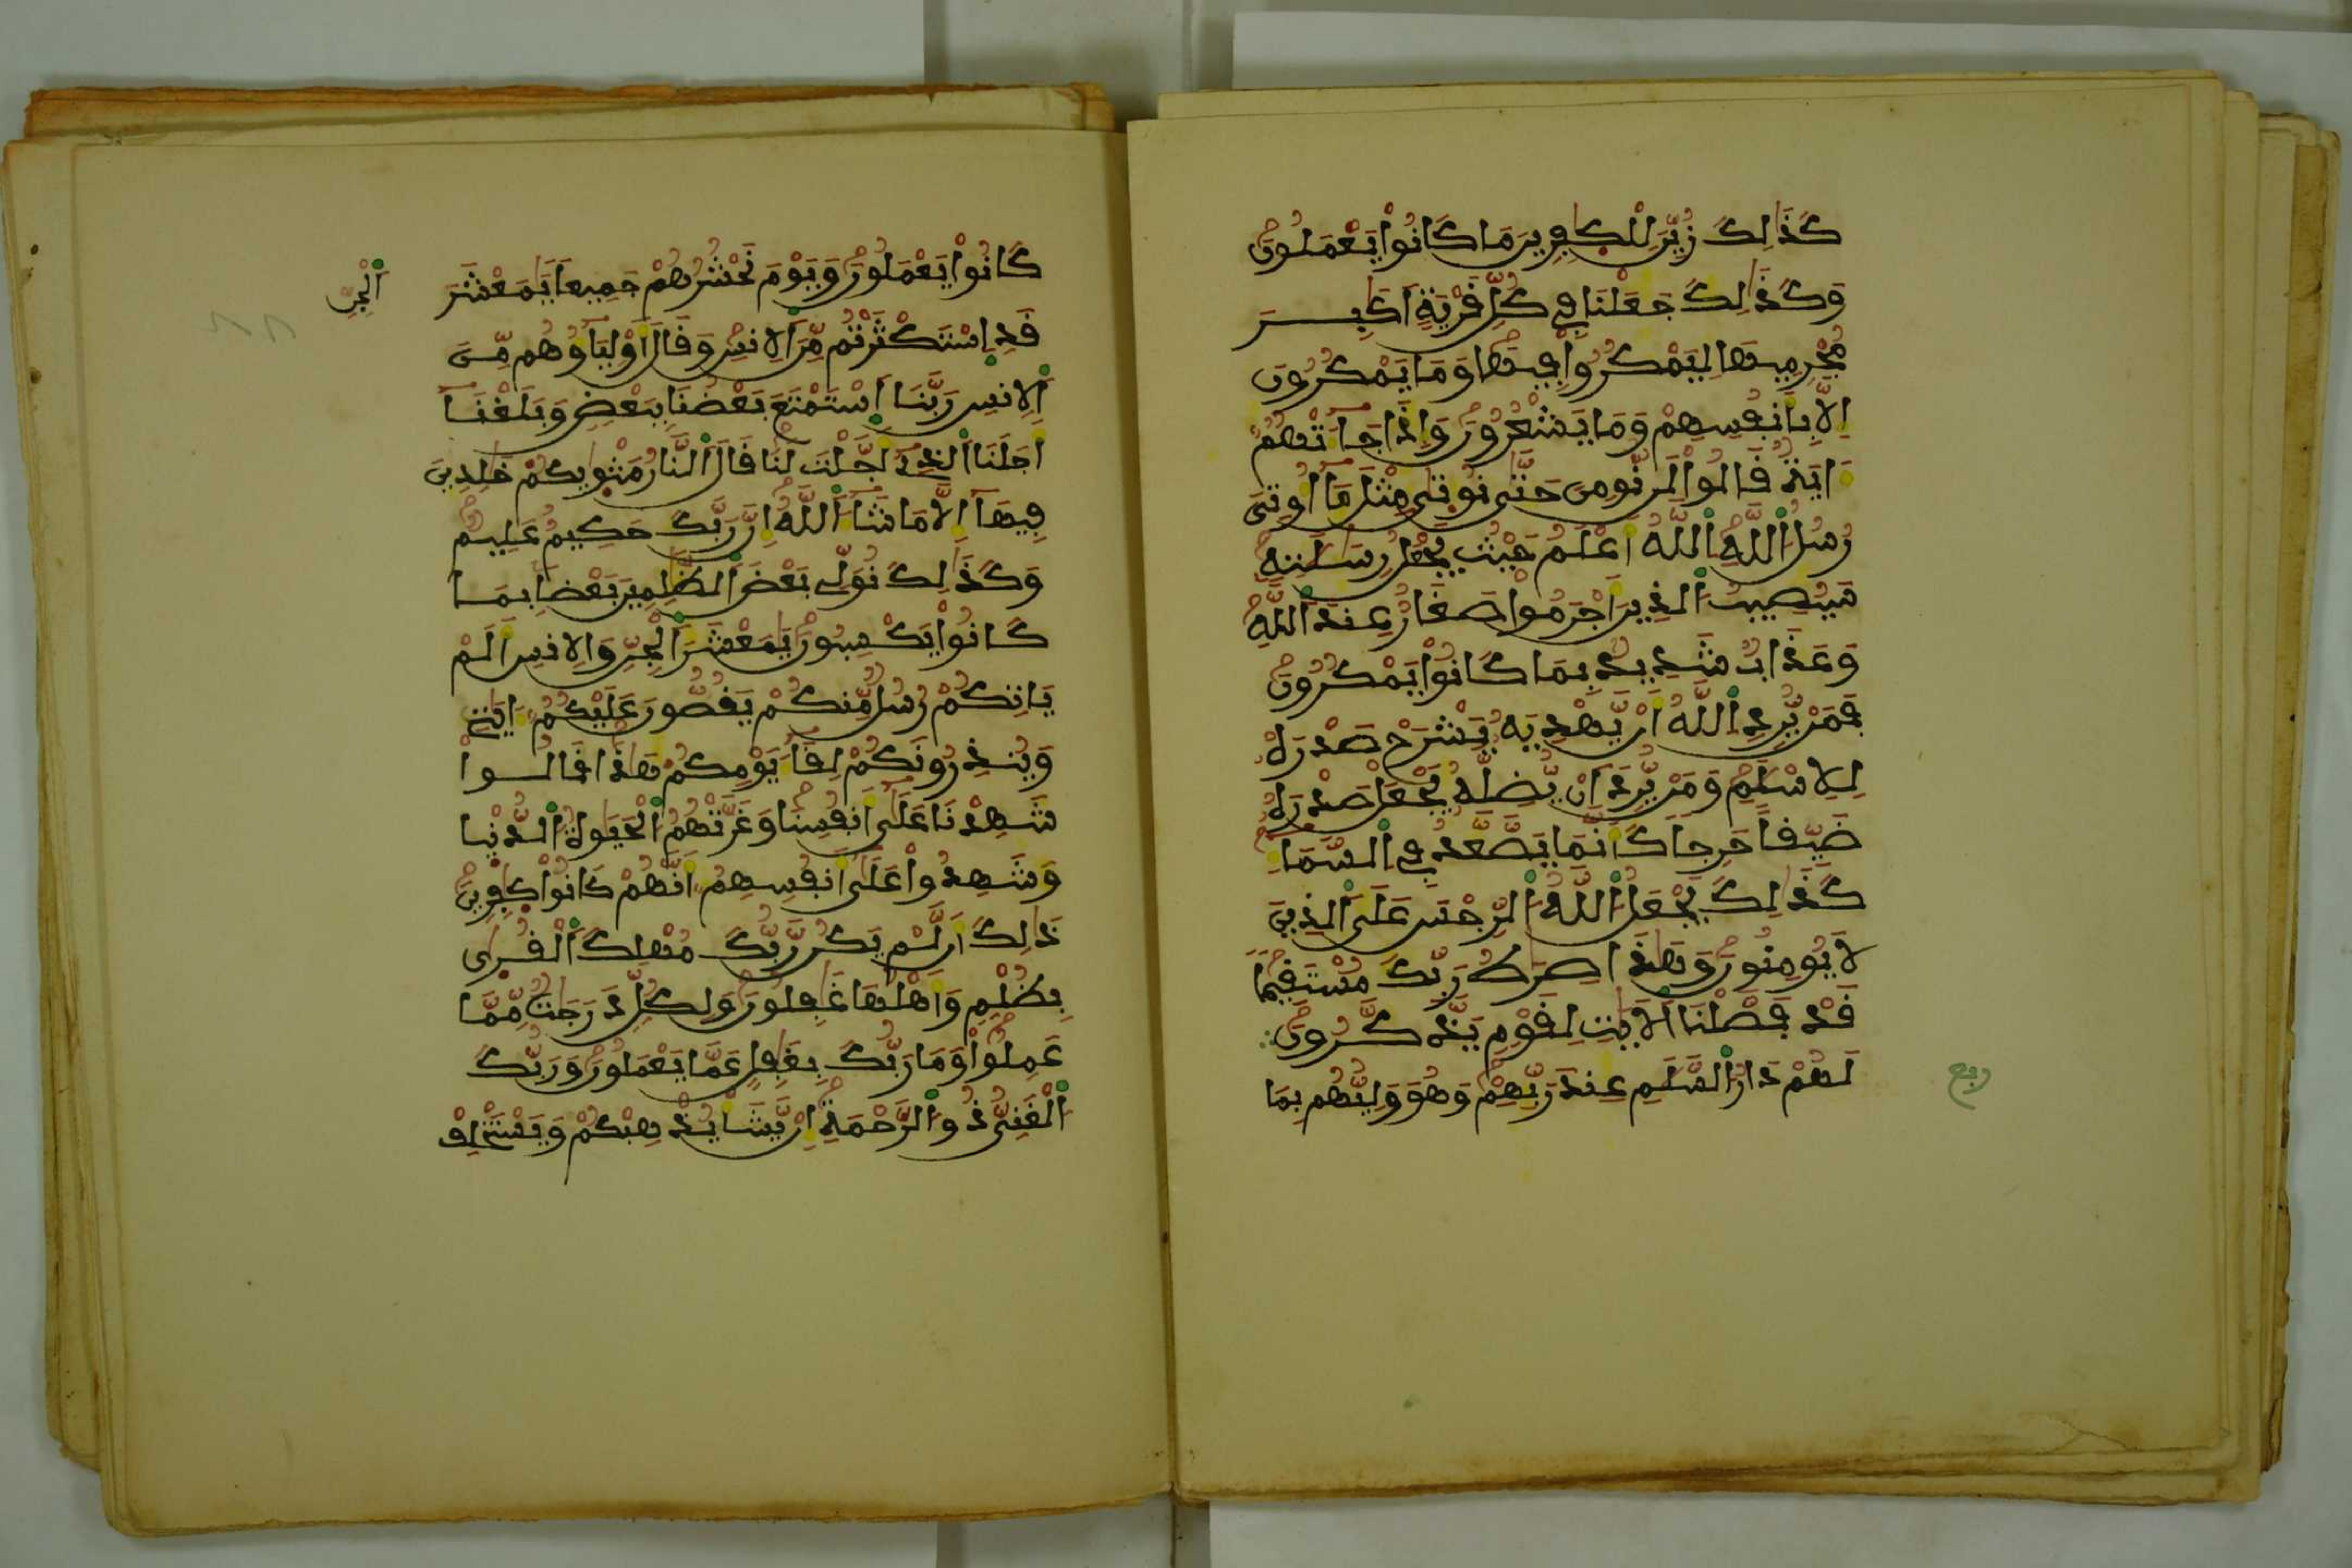 كَذَٰلِكَ زُيِّنَ لِلْكٰفِرِينَ مَا كَانُواْ يَعْمَلُونَ
وَكَذَٰلِكَ جَعَلْنَا فِي كُلِّ قَرْيَةٍ اَكٰبِرَ
مُجْرِمِيهَا لِيَمْكُرُواْ فِيهَا وَمَا يَمْكُرُونَ
إِلَّا بِأَنفُسِهِمْ وَمَا يَشْعُرُونَ وَإِذَا جَآءَتْهُمُ
ءَايَةٌ قَالُواْ لَن نُّومِنَ حَتَّىٰ نُوتَىٰ مِثْلَ مَآ أُوتِيَ
رُسُلُ اللَّهِ اللَّهُ أَعْلَمُ حَيْثُ يَجْعَلُ رِسَٰلَٰتِهِ
سَيُصِيبُ الذِينَ أَجْرَمُواْ صَغَارٌ عِندَ اللَّهِ
وَعَذَابٌ شَدِيدٌ بِمَا كَانُواْ يَمْكُرُونَ
فَمَنْ يُّرِدِ اللَّهُ أَنْ يَّهْدِيَهُ يَشْرَحْ صَدْرَهُ
لِلْإِسْلَٰمِ وَمَنْ يُّرِدَ اَنْ يُّضِلَّهُ يَجْعَلْ صَدْرَهُ
ضَيِّقاً حَرِجاً كَأَنَّمَا يَصَّعَّدُ فِي السَّمَآءِ
كَذَٰلِكَ يَجْعَلُ اللَّهُ الرِّجْسَ عَلَى الذِينَ
لَا يُومِنُونَ وَهَٰذَا صِرَٰطُ رَبِّكَ مُسْتَقِيماً
قَدْ فَصَّلْنَا الْأَيَٰتِ لِقَوْمٍ يَذَّكَّرُونَ
لَهُمْ دَارُ السَّلَٰمِ عِندَ رَبِّهِمْ وَهُوَ وَلِيُّهُم بِمَا
ربع
كَانُواْ يَعْمَلُونَ وَيَوْمَ نَحْشُرُهُمْ جَمِيعاً يَٰمَعْشَرَ
الْجِنِّ
قَدِ اِسْتَكْثَرْتُم مِّنَ الْإِنسِ وَقَالَ أَوْلِيَآؤُهُم مِّنَ
الْإِنسِ رَبَّنَا اَسْتَمْتَعَ بَعْضُنَا بِبَعْضٍ وَبَلَغْنَآ
أَجَلَنَا الذِي أَجَّلْتَ لَنَا قَالَ النَّارُ مَثْوٰيكُمْ خَٰلِدِينَ
فِيهَآ إِلَّا مَا شَآءَ اللَّهُ إِنَّ رَبَّكَ حَكِيمٌ عَلِيمٌ
وَكَذَٰلِكَ نُوَلِّي بَعْضَ الظَّٰلِمِينَ بَعْضاً بِمَا
كَانُواْ يَكْسِبُونَ يَٰمَعْشَرَ الْجِنِّ وَالْإِنسِ أَلَمْ
يَاتِكُمْ رُسُلٌ مِّنكُمْ يَقُصُّونَ عَلَيْكُمُ ءَايَٰتِي
وَيُنذِرُونَكُمْ لِقَآءَ يَوْمِكُمْ هَٰذَا قَالُواْ
شَهِدْنَا عَلَىٰٓ أَنفُسِنَا وَغَرَّتْهُمُ الْحَيَوٰةُ الدُّنْيَا
وَشَهِدُواْ عَلَىٰٓ أَنفُسِهِمُ أَنَّهُمْ كَانُواْ كٰفِرِينَ
ذَٰلِكَ أَن لَّمْ يَكُن رَّبُّكَ مُهْلِكَ الْقُرَىٰ
بِظُلْمٍ وَأَهْلُهَا غَٰفِلُونَ وَلِكُلٍّ دَرَجَٰتٌ مِّمَّا
عَمِلُواْ وَمَا رَبُّكَ بِغَٰفِلٍ عَمَّا يَعْمَلُونَ وَرَبُّكَ
الْغَنِيُّ ذُو الرَّحْمَةِ إِنْ يَّشَأْ يُذْهِبْكُمْ وَيَسْتَخْلِفْ